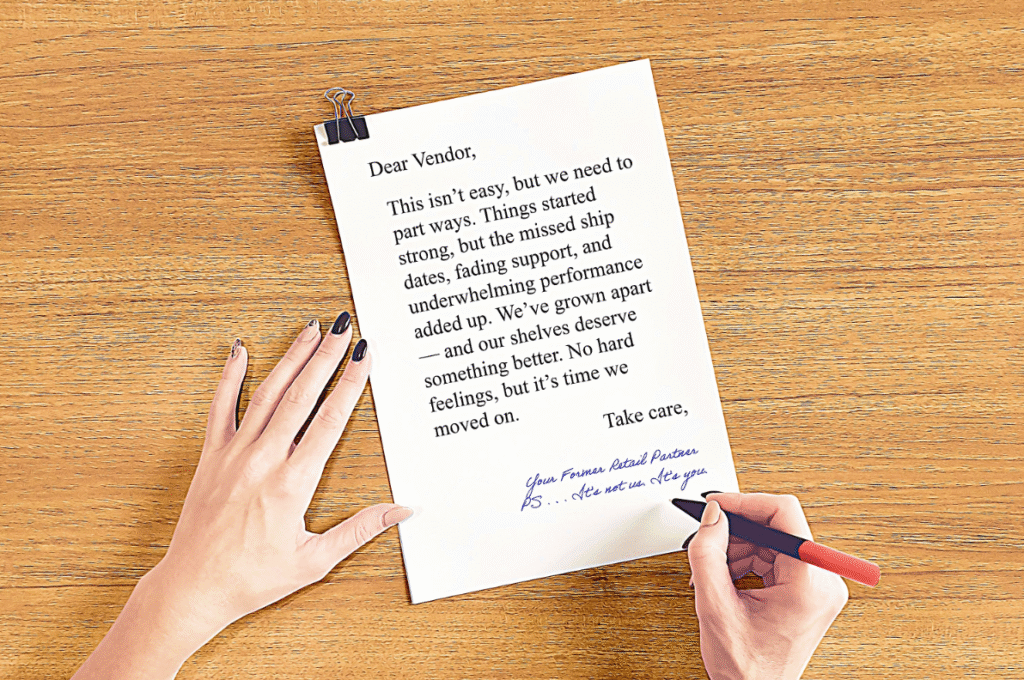 Dear Vendor,
This isn’t easy, but we need to
part ways. Things started
strong, but the missed ship
dates, fading support, and
underwhelming performance
added up. We’ve grown apart
— and our shelves deserve
something better. No hard
feelings, but it’s time we
moved on.
Take care,
Your Former Retail Partner
PS . . . It's not us. It's you.